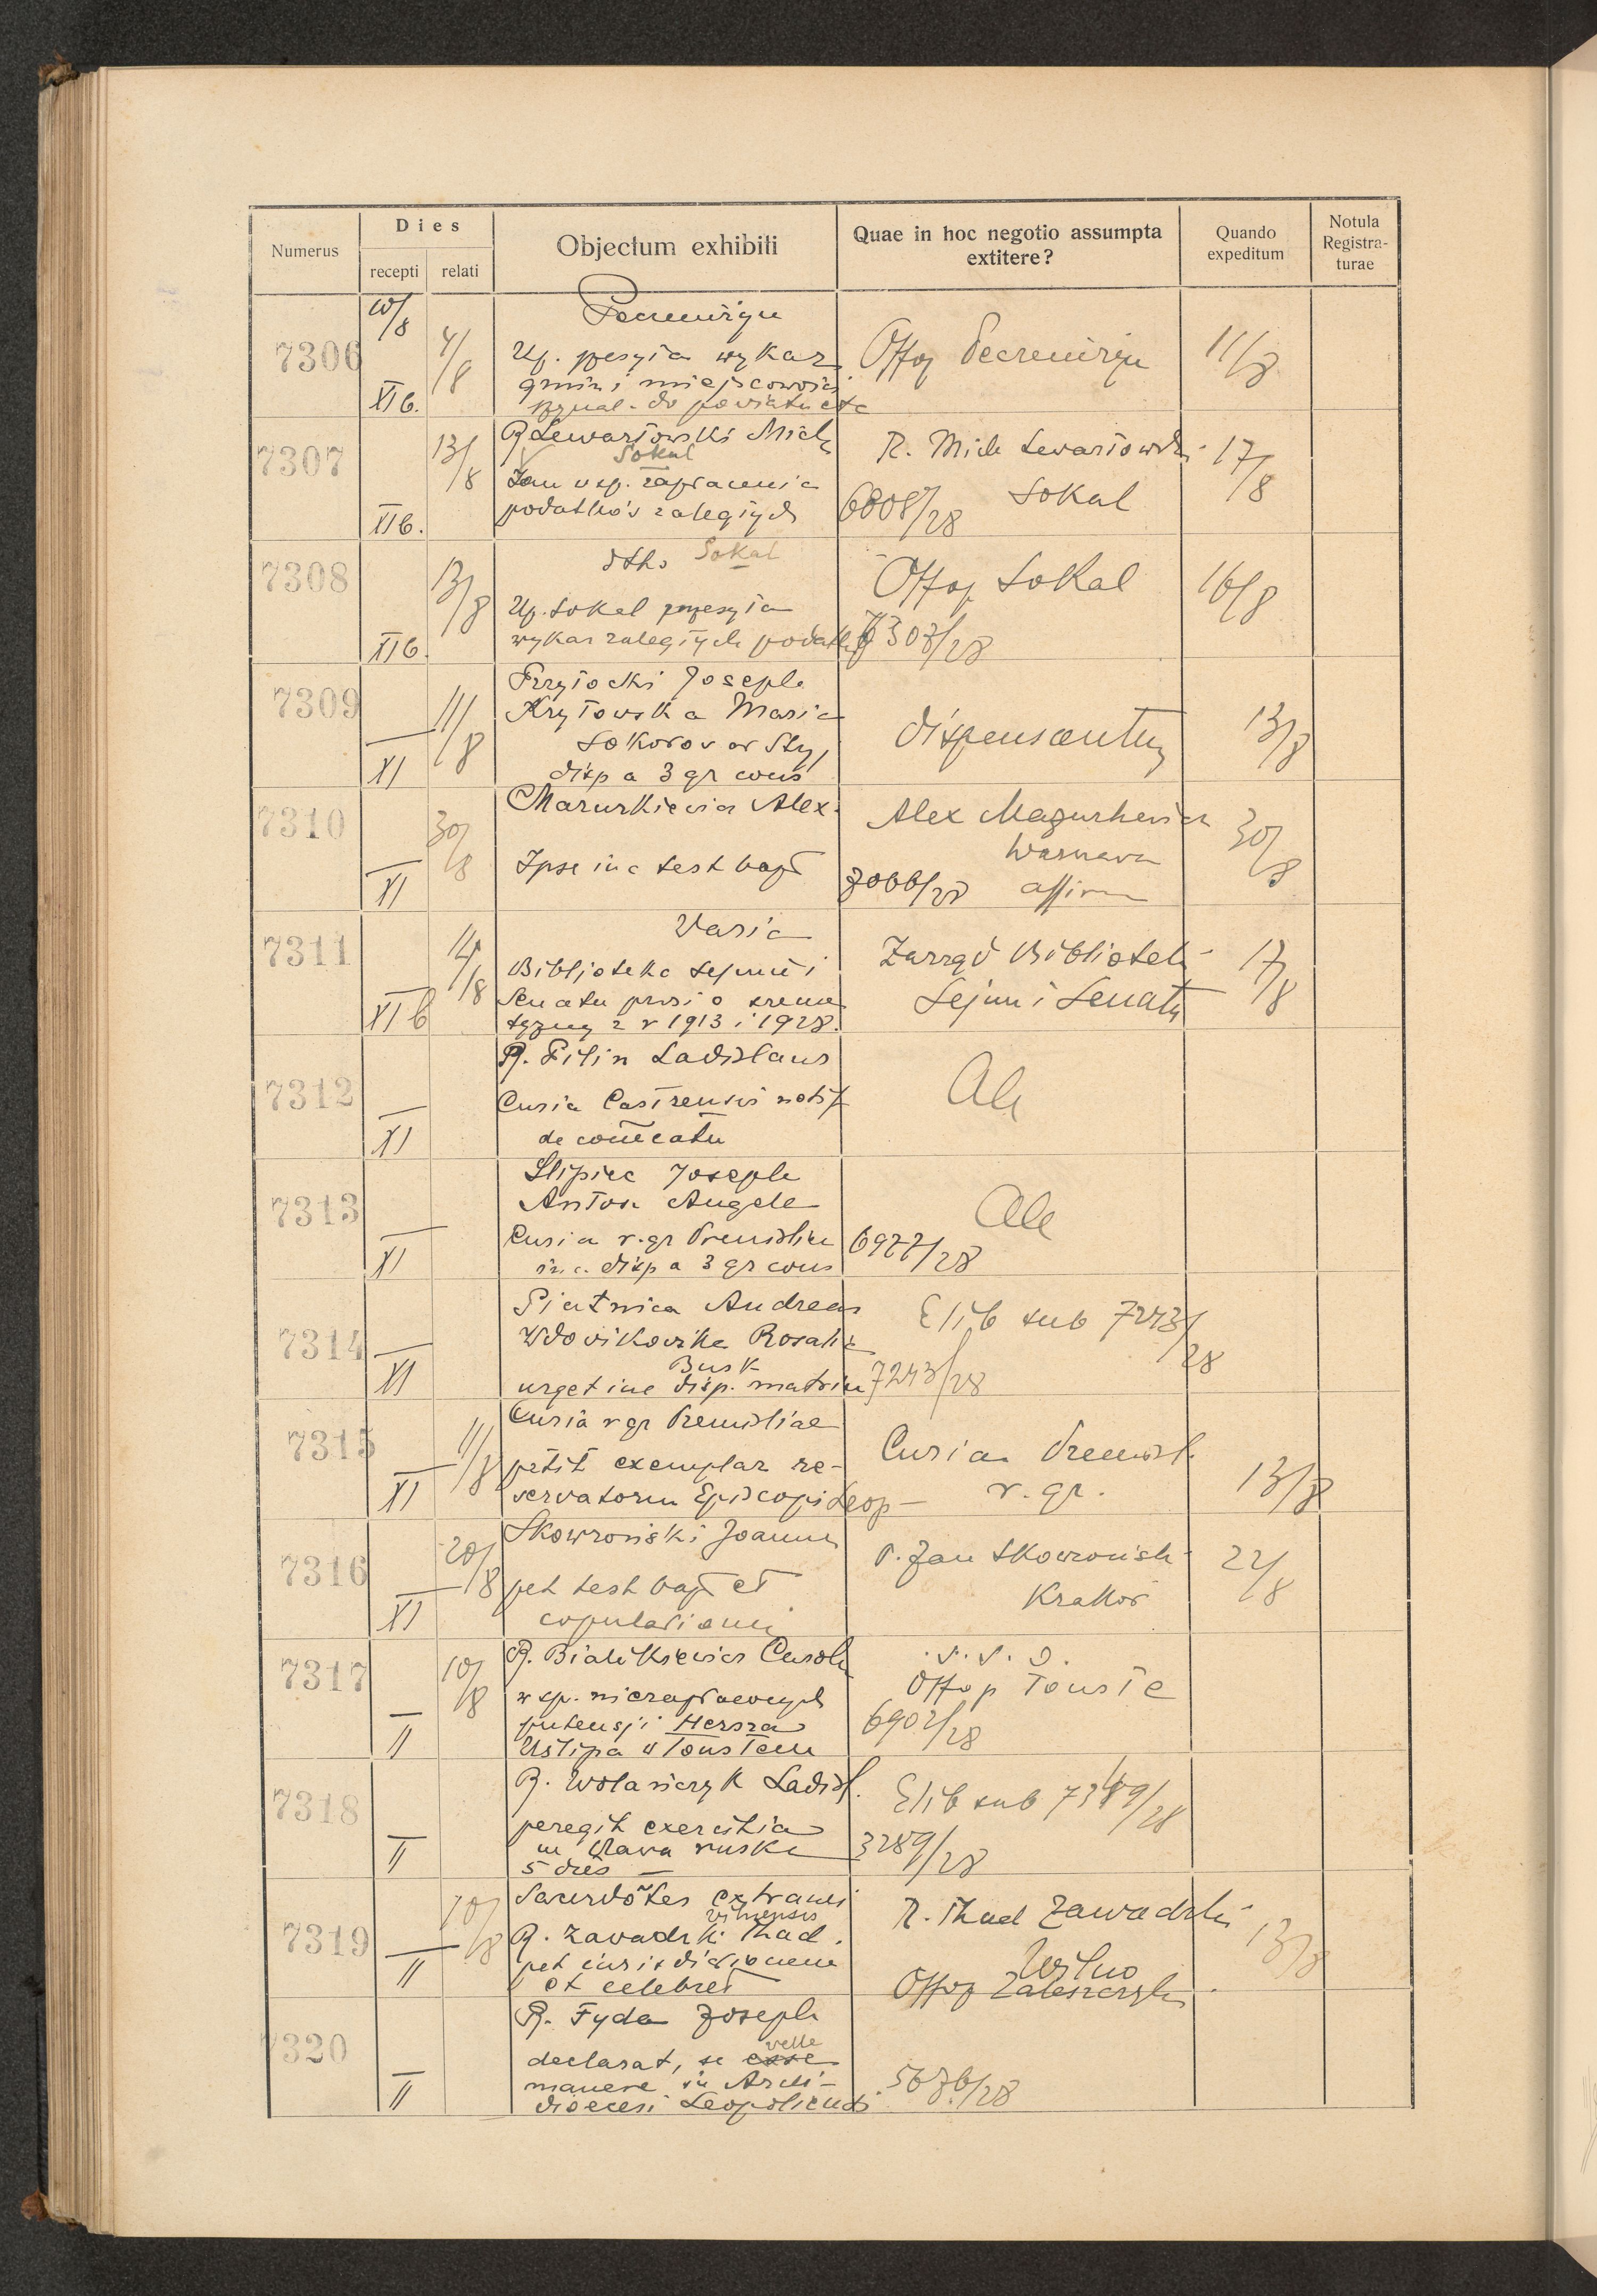 Numerus
Dies
recepti relati
Objectum exhibiti
Quae in hoc negotio assumpta extitere?
Quando expeditum
Notula Registra-turae
7306
10/8
XI b.
Up. wykaz
gmin i miejscowości
do powiatu etc
11/8
7307
XI b.
13/8
R. Lewartowski Mich
Sokal
w sp. zapłacenia
podatków zaległych
R. Mich Lewartowski
Sokal
6808/28
17/8
7308
XI b.
13/8
dtto Sokal
Up. Sokal przesyła
wykaz zaległych podatków
Offop Sokal
7307/28
16/8
7309
XI
11/8
Przytocki Joseph
Krytowska Maria
disp a 3 gr cons
dispensantur
13/8
7310
XI
30/8
Mazurkiewicz Alex.
Ipse in c test bapt
Alex Mazurkiewicz
Warszawa
7066/28 affirm
30/8
7311
XI b
14/8
Varia
Biblioteka Sejmu i
Senatu prosi o szema-
tyzmy z r 1913 i 1928.
Zarząd Biblioteki
Sejmu i Senatu
17/8
7312
XI
R. Filin Ladislaus
Curia Castrensis notif
de comeatu
7313
XI
Slipiec Joseph
Anton Angela
Curia r. gr Premisliae
in c. disp a 3 gr cons
6977/28
7314
XI
Piatnica Andreas
Wdowikowska Rosalia
Busk
urget in c disp. matrim
Elib sub 7243/28
7243/28
7315
XI
11/8
Curia r gr Premisliae
petit exemplar re-
servatorum Episcopi Leop-
Curia Premisl.
r. gr.
13/8
7316
XI
20/8
Skowroński Joannes
pet test bapt et
copulationis
P. Jan Skowroński
Kraków
22/8
7317
II
10/8
R. Bialikiewicz Carol
w sp. niezapłaconych
pretensji Hersza
Uslipa w Toustem
Offop Touste
6902/28
7318
II
R. Wolańczyk Ladisl.
peregit exercitia
in Rawa ruska
5 dies
3289/28
7319
II
10/8
Sacerdotes extranei
vilnensis
R. Zawadzki Thad.
pet iurisdictionem
et celebret
R. Thad Zawadzki
Wilno
Offop Zaleszczyki
13/8
7320
II
R. Fyda Joseph
velle
declarat, se esse
manere in Archi-
dioecesi Leopoliensi
5676/28